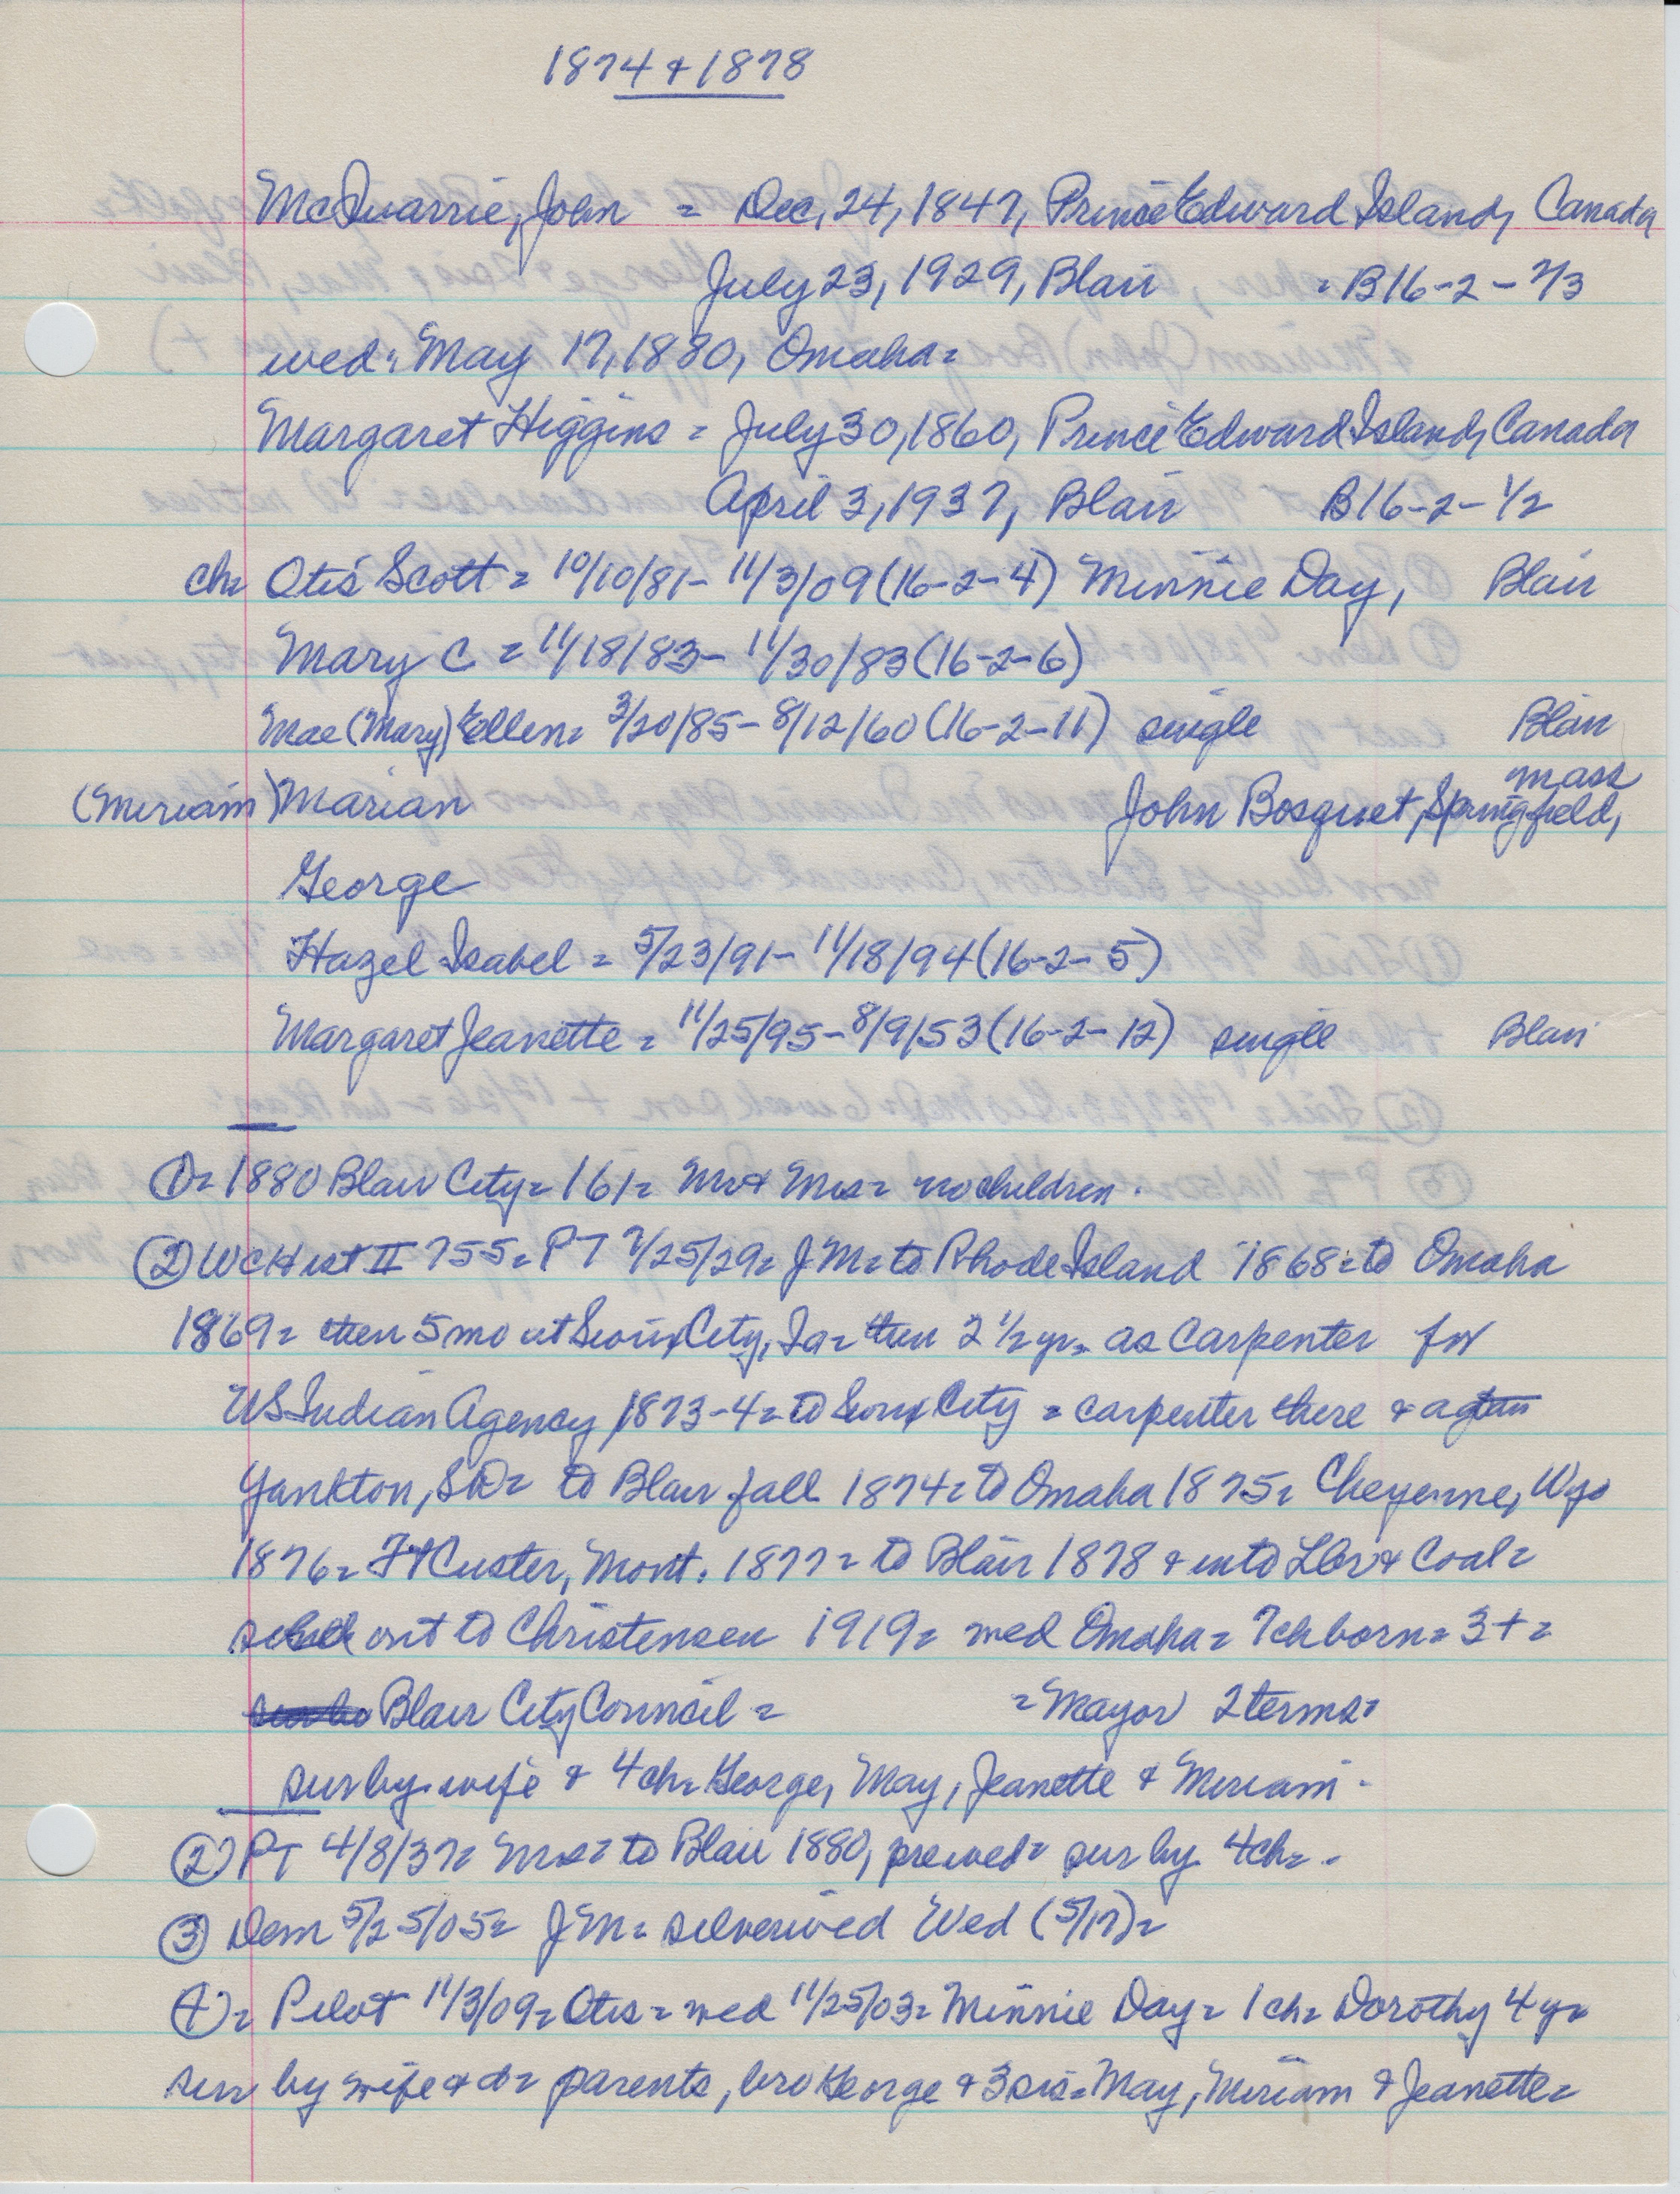 1874 & 1878
McQuarrie, John = Dec, 24, 1847, Prince Edward Island, Canada
July 23, 1929, Blair = B16-2-2/3
wed: May 17, 1880, Omaha=
Margaret Higgins = July 30, 1860, Prince Edward Island, Canada
April 3, 1937, Blair B16-2-1/2
ch= Otis Scott = 10/10/81- 11/3/09 (16-2-4) Minnie Day, Blair
Mary C = 11/18/83- 11/30/83 (16-2-6)
Mae (Mary) Ellen= 3/20/85- 8/12/60 (16-2-11) single Blair
(Miriam) Marian John Bosquet, Springfield, Mass
George
Hazel Isabel = 5/23/91- 11/18/94 (16-2-5)
Margaret Jeanette = 11/25/95- 8/9/53 (16-2-12) single Blair
①= 1880 Blair City= 161= Mr & Mrs= no children.
② WCHist II 755= PT 7/25/29= JM= to Rhode Island 1868= to Omaha
1869= then 5 mo at Sioux City, Ia= then 2 1/2 yr= as Carpenter for
US Indian Agency 1873-4= to Sioux City = carpenter there & at
Yankton, SD= to Blair fall 1874= to Omaha 1875= Cheyenne, Wyo
1876= Ft Custer, Mont. 1877= to Blair 1878 & into Lbr & Coal=
sold out to Christensen 1919= wed Omaha= 7 ch born= 3+=
Blair City Council = = Mayor 2 terms=
sur by wife & 4 ch= George, May, Jeanette & Miriam.
② PT 4/8/37= Mrs= to Blair 1880, prewed= sur by 4 ch=.
③ Dem 5/25/05= JM= silverwed Wed (5/17)=
④= Pilot 11/3/09= Otis= wed 11/25/03= Minnie Day= 1 ch= Dorothy 4 y=
sur by wife & d= parents, bro George & 3 sis= May, Miriam & Jeanette=